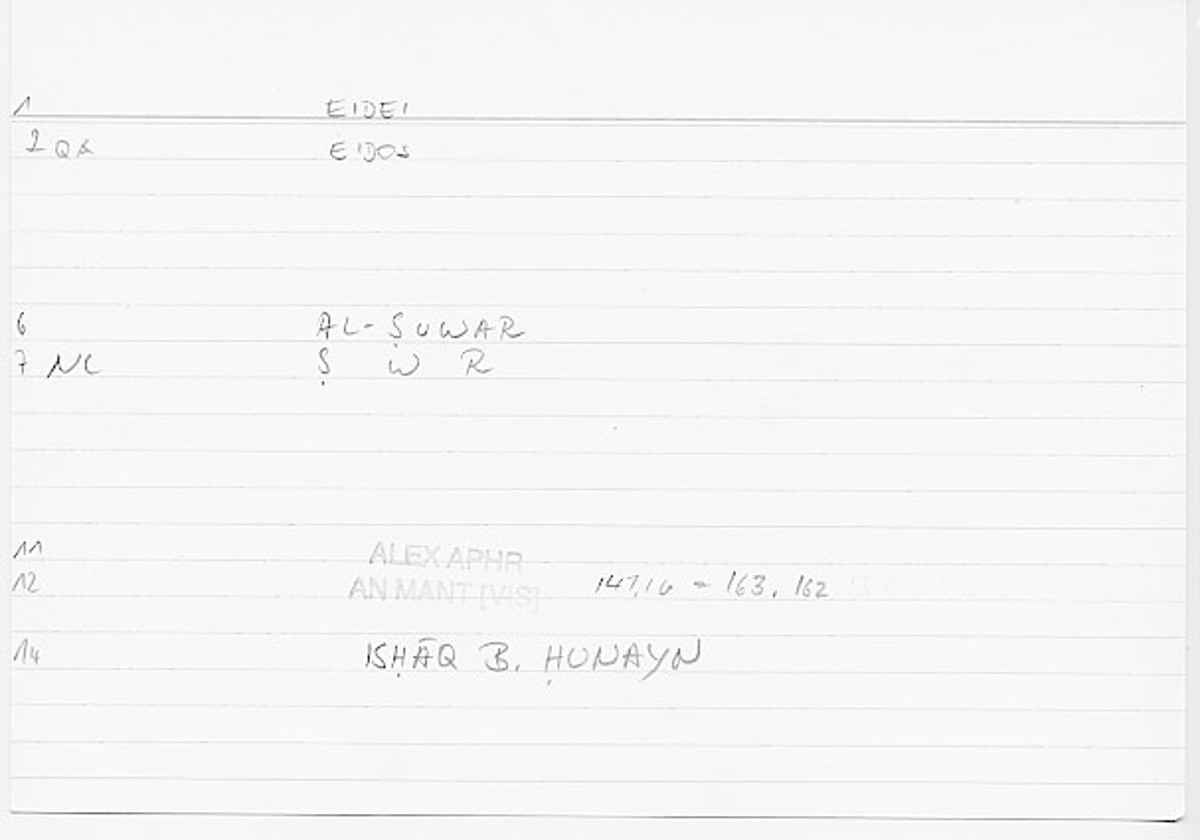 1 EIDEI
2 QA EIDOS
6 AL-ṢUWAR
7 NC Ṣ W R
11 ALEX APHR
12 AN MANT [VIS] 147,16 = 163, 162
14 ISḤĀQ B. ḤUNAYN